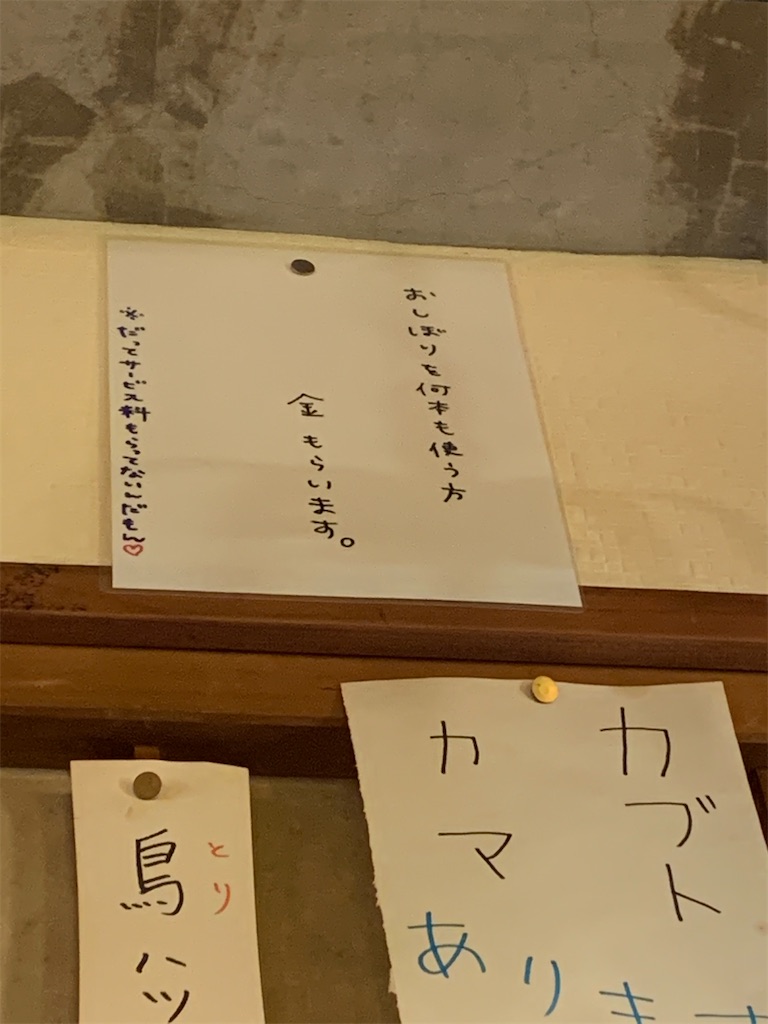 おしぼりを何本も使う方
金もらいます。
※だってサービス料もらってないんだもん♡
カブト
カマ
あります
とり
鳥ハツ